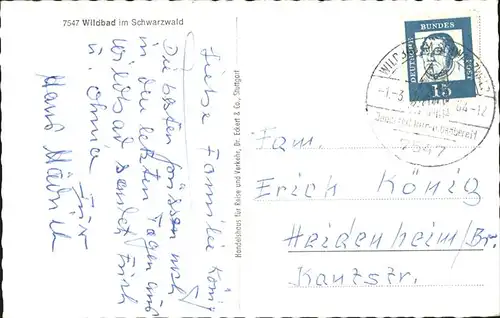 7547 Wildbad im Schwarzwald
Liebe Familie König
Die besten Grüssen noch
in den letzten Tagen aus
Wildbad sendet Euch
u. Ohnie
Euer
Hans
Handelshaus für Reise und Verkehr, Dr. Eckert & Co., Stuttgart
DEUTSCHE
BUNDES
POST
15
WILDBAD
-1.-3.
64-12
7547
Fam.
Erich König
Heidenheim/Br.
Kantstr.